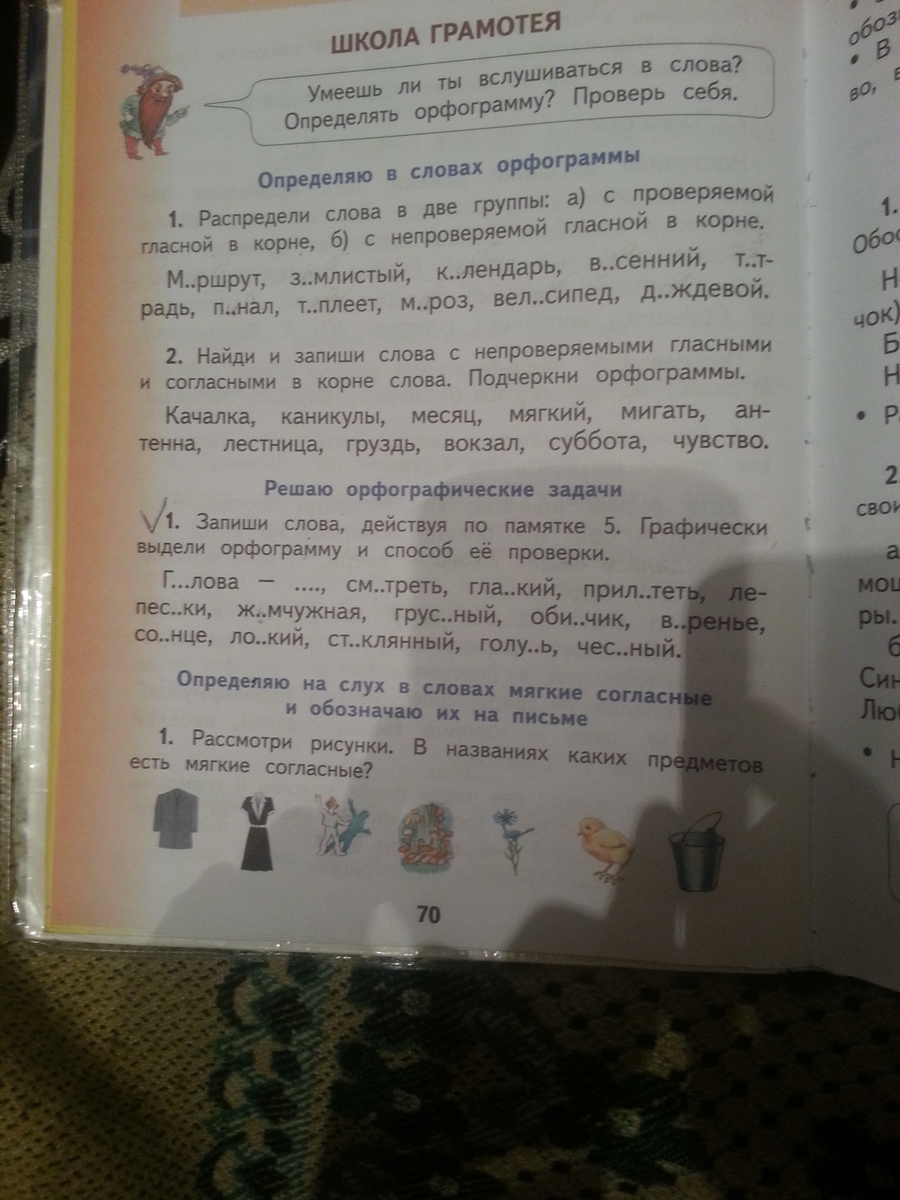 ШКОЛА ГРАМОТЕЯ
Умеешь ли ты вслушиваться в слова?
Определять орфограмму? Проверь себя.
Определяю в словах орфограммы
1. Распредели слова в две группы: а) с проверяемой
гласной в корне, б) с непроверяемой гласной в корне.
М..ршрут, з..млистый, к..лендарь, в..сенний, т..т-
радь, п..нал, т..плеет, м..роз, вел..сипед, д..ждевой.
2. Найди и запиши слова с непроверяемыми гласными
и согласными в корне слова. Подчеркни орфограммы.
Качалка, каникулы, месяц, мягкий, мигать, ан-
тенна, лестница, груздь, вокзал, суббота, чувство.
Решаю орфографические задачи
1. Запиши слова, действуя по памятке 5. Графически
выдели орфограмму и способ её проверки.
Г...лова — ...., см..треть, гла..кий, прил..теть, ле-
пес..ки, ж..мчужная, грус..ный, оби..чик, в..ренье,
со..нце, ло..кий, ст..клянный, голу..ь, чес..ный.
Определяю на слух в словах мягкие согласные
и обозначаю их на письме
1. Рассмотри рисунки. В названиях каких предметов
есть мягкие согласные?
70
обоз
• В
во, в
1.
Обос
Н
чок)
Б
Н
• Р
2
свои
а
мощ
ры.
б
Син
Лю
• Н